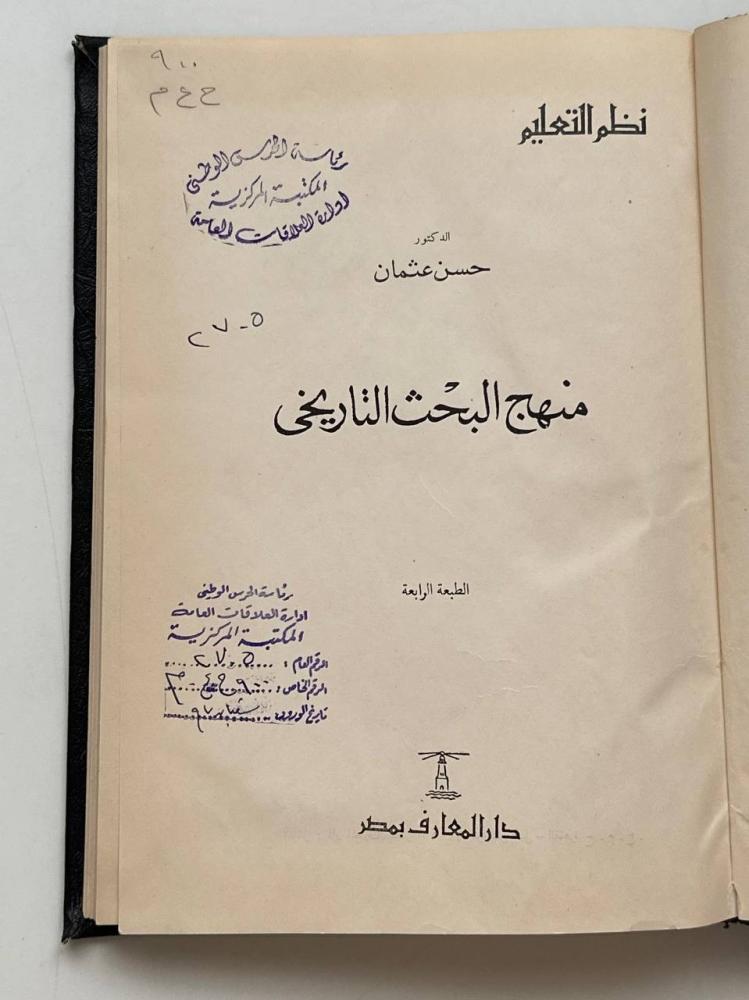 ٩٠٠
ح ع م
نظم التعليم
رئاسة الحرس الوطني
المكتبة المركزية
ادارة العلاقات العامة
الدكتور
حسن عثمان
٢٧٠٥
منهج البحث التاريخى
الطبعة الرابعة
رئاسة الحرس الوطني
ادارة العلاقات العامة
المكتبة المركزية
الرقم العام: ٢٧٠٥
الرقم الخاص: ٩٠٠ ح ع م
تاريخ الورود: ٩٧
دار المعارف بمصر